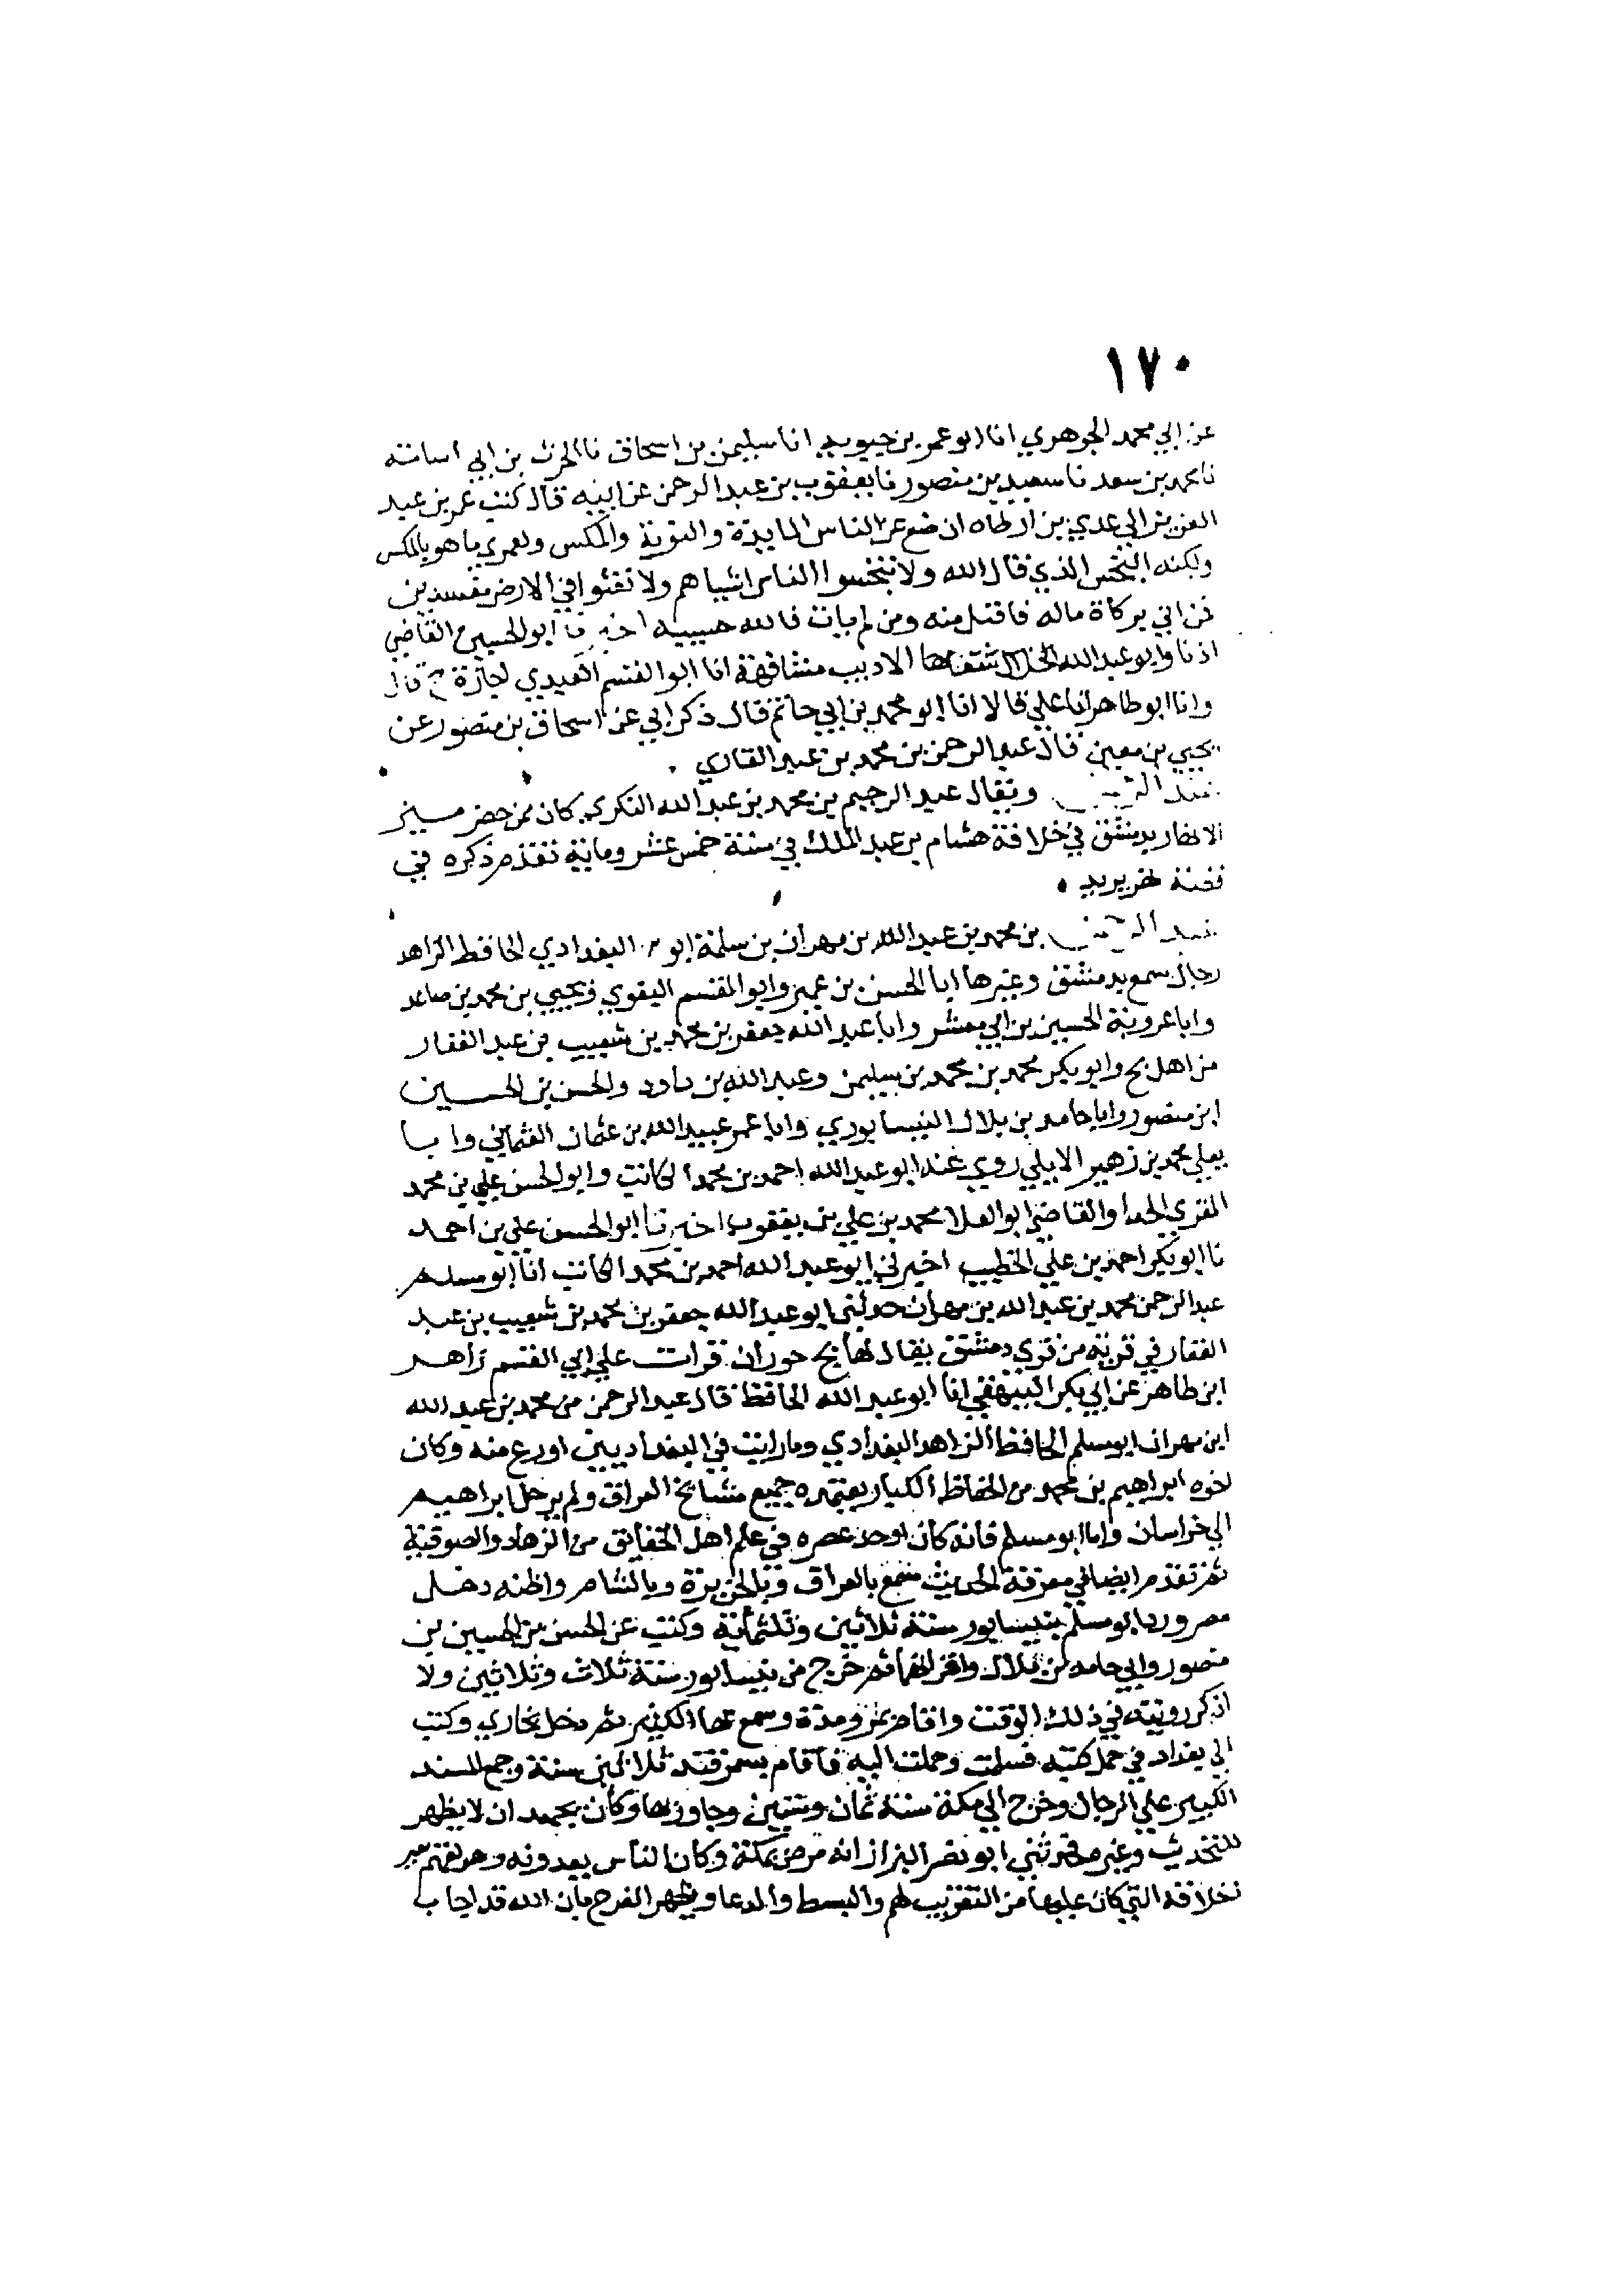 ١٧٠
عن ابي محمد الجوهري انا ابو عمر بن حيويه انا سليمن بن اسحاق نا الحرث بن ابي اسامة
نا محمد بن سعد نا سعيد بن منصور نا يعقوب بن عبد الرحمن عن ابيه قال كتب عمر بن عبد
العزيز الي عدي بن ارطاه ان ضع عن الناس المايدة والنوبة والمكس ولعمري ما هو بالمكس
ولكنه البخس الذي قال الله ولا تبخسوا الناس اشياهم ولا تعثوا في الارض مفسدين
فمن اتي بزكاة ماله فاقبل منه ومن لم يات فالله حسيبه اخبرنا ابو الحسين القاضي
اذنا وابو عبد الله الخلال شفاها الاديب مشافهة انا ابو القسم العبدي اجازة ح قال
وانا ابو طاهر انا علي قالا انا ابو محمد بن ابي حاتم قال ذكر ابي عن اسحاق بن منصور عن
يحيي بن معين قال عبد الرحمن بن محمد بن عبد القاري
عبد الرحمن ويقال عبد الرحيم بن محمد بن عبد الله البكري كان ممن حضر مسير
بدمشق في خلافة هشام بن عبد الملك في سنة خمس عشر وماية تقدم ذكره في
عبد الرحمن بن محمد بن عبد الله بن مهران بن سلمة ابو م البغدادي الحافظ الزاهد
رحال سمع بدمشق وغيرها ابا الحسن بن عمير وابو القسم البغوي ويحيي بن محمد بن صاعد
وابا عروبة الحسين بن ابي معشر وابا عبد الله جعفر بن محمد بن شعيب بن عبد الغفار
من اهل بج وابو بكر محمد بن محمد بن سليمن وعبد الله بن داود والحسن بن الحسين
ابن منصور وابا حامد بن بلال النيسابوري وابا عمر عبيد الله بن عثمان العثماني وابا
يعلي محمد بن زهير الابلي روي عنه ابو عبد الله احمد بن محمد الكاتب وابو الحسن علي بن محمد
المقري الحذا والقاضي ابو العلا محمد بن علي بن يعقوب اخبرنا ابو الحسن علي بن احمد
نا ابو بكر احمد بن علي الخطيب اخبرني ابو عبد الله احمد بن محمد الكاتب انا ابو مسلم
عبد الرحمن محمد بن عبد الله بن مهران حدثني ابو عبد الله جعفر بن محمد بن شعيب بن عبد
الغفار في قرية من قري دمشق يقال لها بج حوران قرات علي ابي القسم زاهر
ابن طاهر عن ابي بكر البيهقي انا ابو عبد الله الحافظ قال عبد الرحمن بن محمد بن عبد الله
ابن مهران ابو مسلم الحافظ الزاهد البغدادي وما رايت في البغداديين اورع منه وكان
اخوه ابراهيم بن محمد من الحفاظ الكبار يعتمده جميع مشايخ العراق ولم يرحل ابراهيم
الي خراسان واما ابو مسلم فانه كان اوحد عصره في علم اهل الحقايق من الزهاد والصوفية
ثم تقدم ايضا في معرفة الحديث سمع بالعراق وبالجزيرة وبالشام واظنه دخل
مصر ورد ابو مسلم نيسابور سنة ثلاثين وثلثماية وكتب عن الحسن بن الحسين بن
منصور وابي حامد بن بلال واقرانهما ثم خرج من نيسابور سنة ثلاث وثلاثين ولا
اذكر رويته في ذلك الوقت واقام بمرو مدة وسمع بها الكثير ثم دخل بخاري وكتب
الي بغداد في حمل كتبه فسلمت وحملت اليه فاقام بسمرقند ثلاثين سنة وجمع المسند
الكبير علي الرجال وخرج الي مكة سنة ثمان وستين وجاور بها وكان يجهد ان لا يظهر
للتحديث وغيره فحدثني ابو نصر البزاز انه مرض بمكة وكان الناس يعودونه وهو
اخلاقه التي كان عليها من التقريب لهم والبسط والدعا ويظهر الفرح بان الله قد اجاب